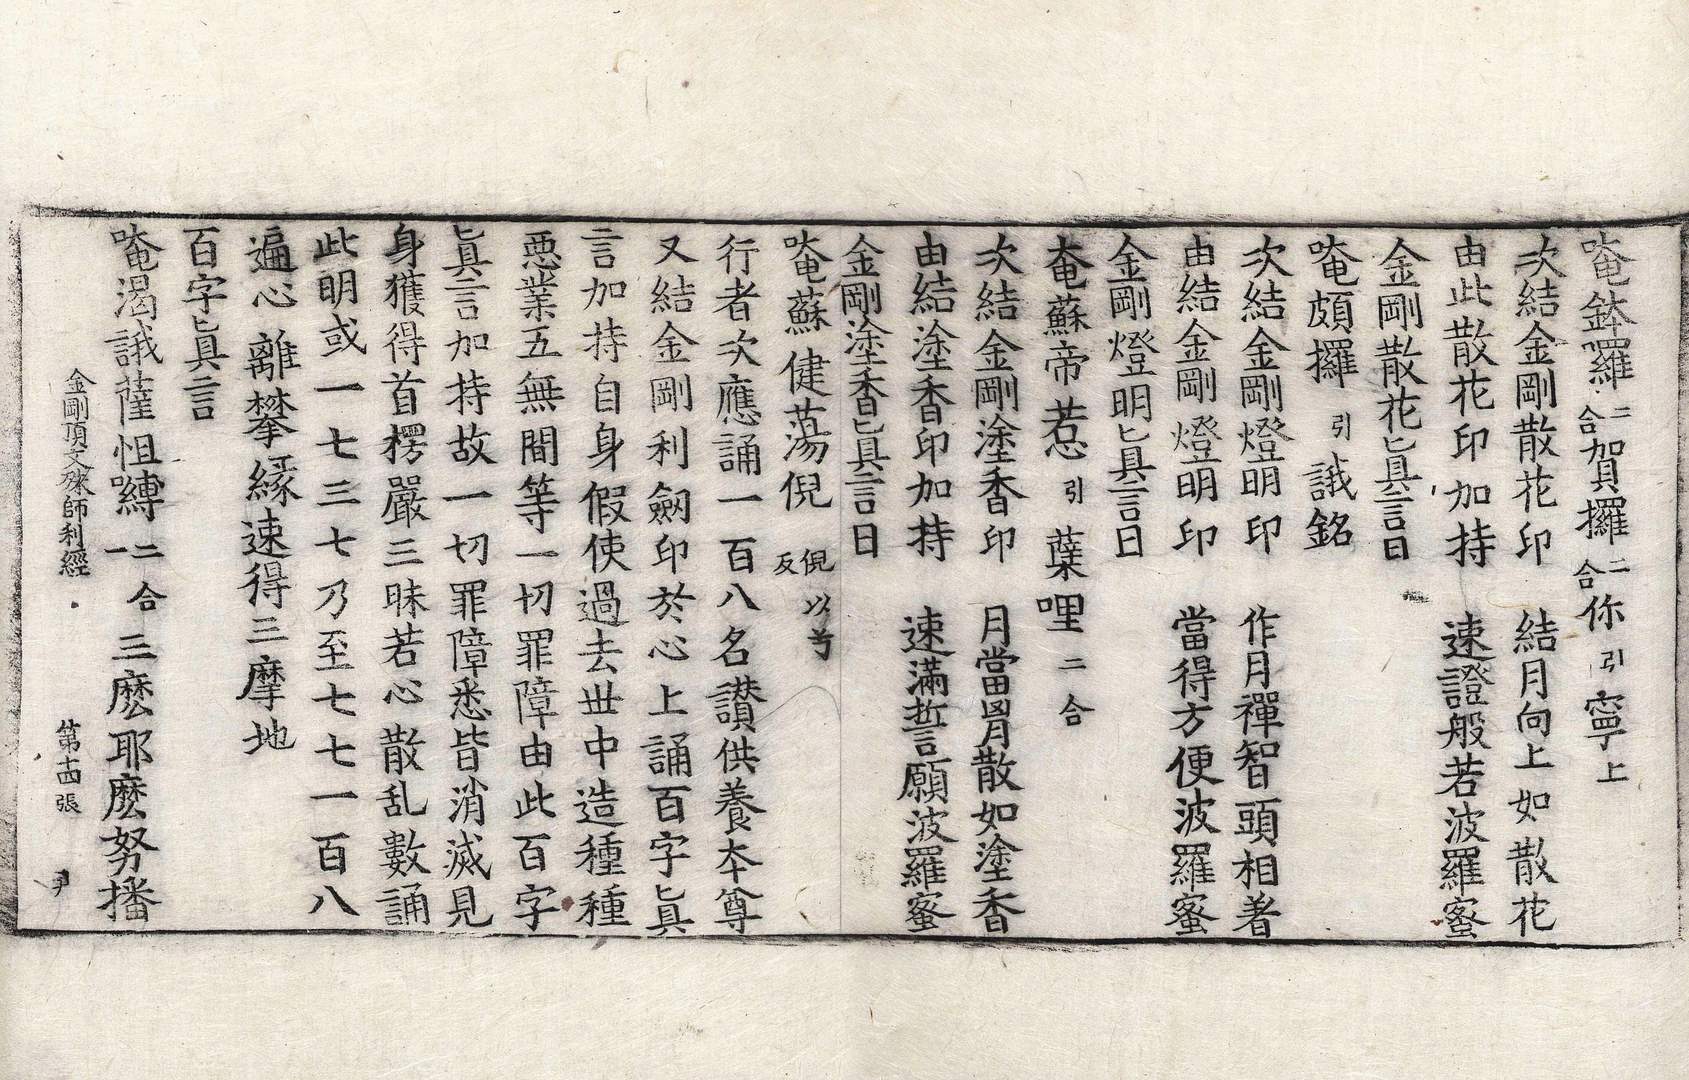 唵鉢囉二合賀攞二合你引寧上
次結金剛散花印　結月向上如散花
由此散花印加持　速證般若波羅蜜
金剛散花眞言曰
唵頗攞引誐銘
次結金剛燈明印　作月禪智頭相著
由結金剛燈明印　當得方便波羅蜜
金剛燈明眞言曰
奄蘇帝惹引蘖哩二合
次結金剛塗香印　月當胷散如塗香
由結塗香印加持　速滿誓願波羅蜜
金剛塗香眞言曰
唵蘇健蕩倪倪以反
行者次應誦一百八名讚供養本尊
又結金剛利劒印於心上誦百字眞
言加持自身假使過去世中造種種
惡業五無間等一切罪障由此百字
眞言加持故一切罪障悉皆消滅見
身獲得首楞嚴三昧若心散乱數誦
此明或一七三七乃至七七一百八
遍心離攀緣速得三摩地
百字眞言
唵渴誐薩怛嚩二合一三麽耶麽努播
金剛頂文殊師利經　第十四張　尹